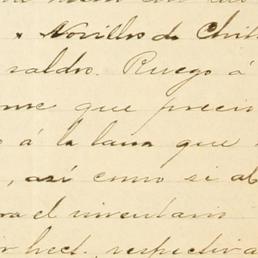 Novillos de Chil
saldo. Ruego á
me que preci
á la lana que
, así como si al
ra el inventario
hect. respectiva